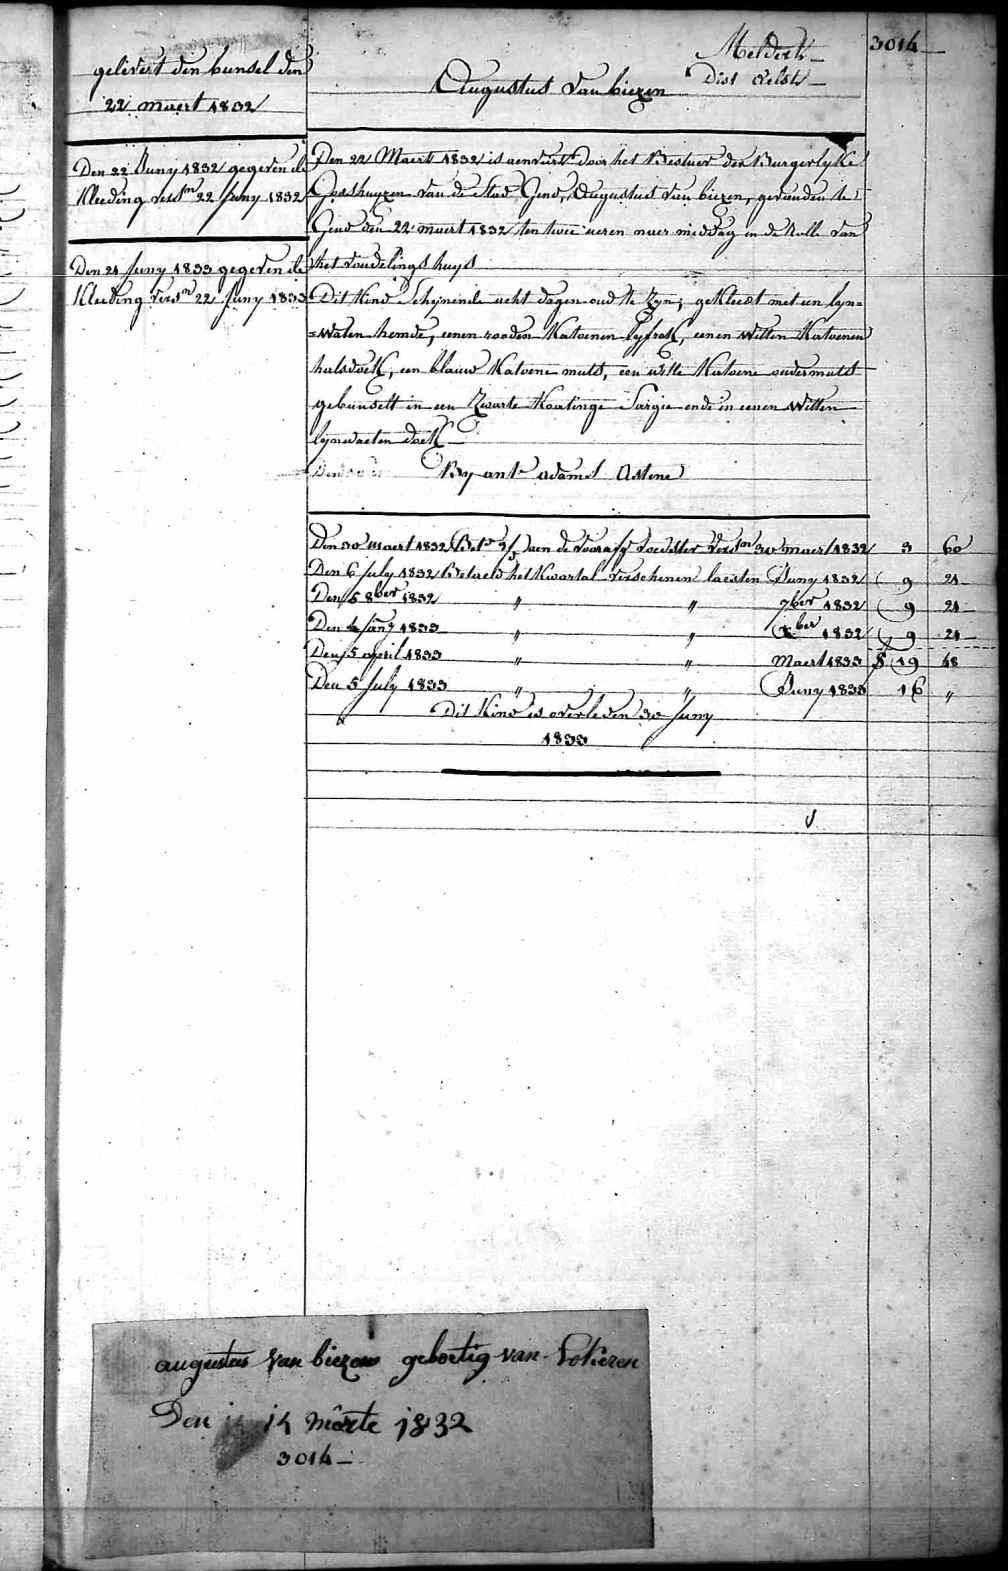 3014
gelevert den bunsel den
22 maert 1832
Melderts
Dist Aelst
Augustus Van biezen
Den 22 Juny 1832 gegeven de
Kleeding versn 22 Juny 1832
Den 21 Juny 1833 gegeven de
Kleeding versn 22 Juny 1833
Den 22 Maert 1832 is aenveirt door het Bestuer der Burgerlyke
Godshuyzen van de Stad Gend, Augustus van biezen, gevonden te
Gend den 22 maert 1832 ten twee ueren naer middag in de Rolle van
het vondelings huys
Dit Kind Schynende acht dagen oud te Zyn; gekleed met een lyn=
=waten hemde, eenen rooden Katoenen lyfrok, eenen witten Katoenen
halsdoek, een blauw Katoene muts, een witte Katoene ondermuts
gebunselt in een Zwarte Sargie ende in eenen Witten
lynwaeten doek
By ant Adams Astene
Den 30 maert 1832 aen de voedster versn 30 maert 1832 3 60
Den 6 July 1832 Betaeld het Kwartal verschenen laesten Juny 1832 9 24
Den 5 8ber 1832 " " 7ber 1832 9 24
Den 4 Janry 1833 " " Xber 1832 9 24
Den 5 april 1833 " " Maert 1833 19 48
Den 5 July 1833 " " Juny 1833 16 "
Dit Kind is overleden 30 Juny
1833
augustus Van biezen geboetig van Lokeren
Den 14 mârte 1832
3014